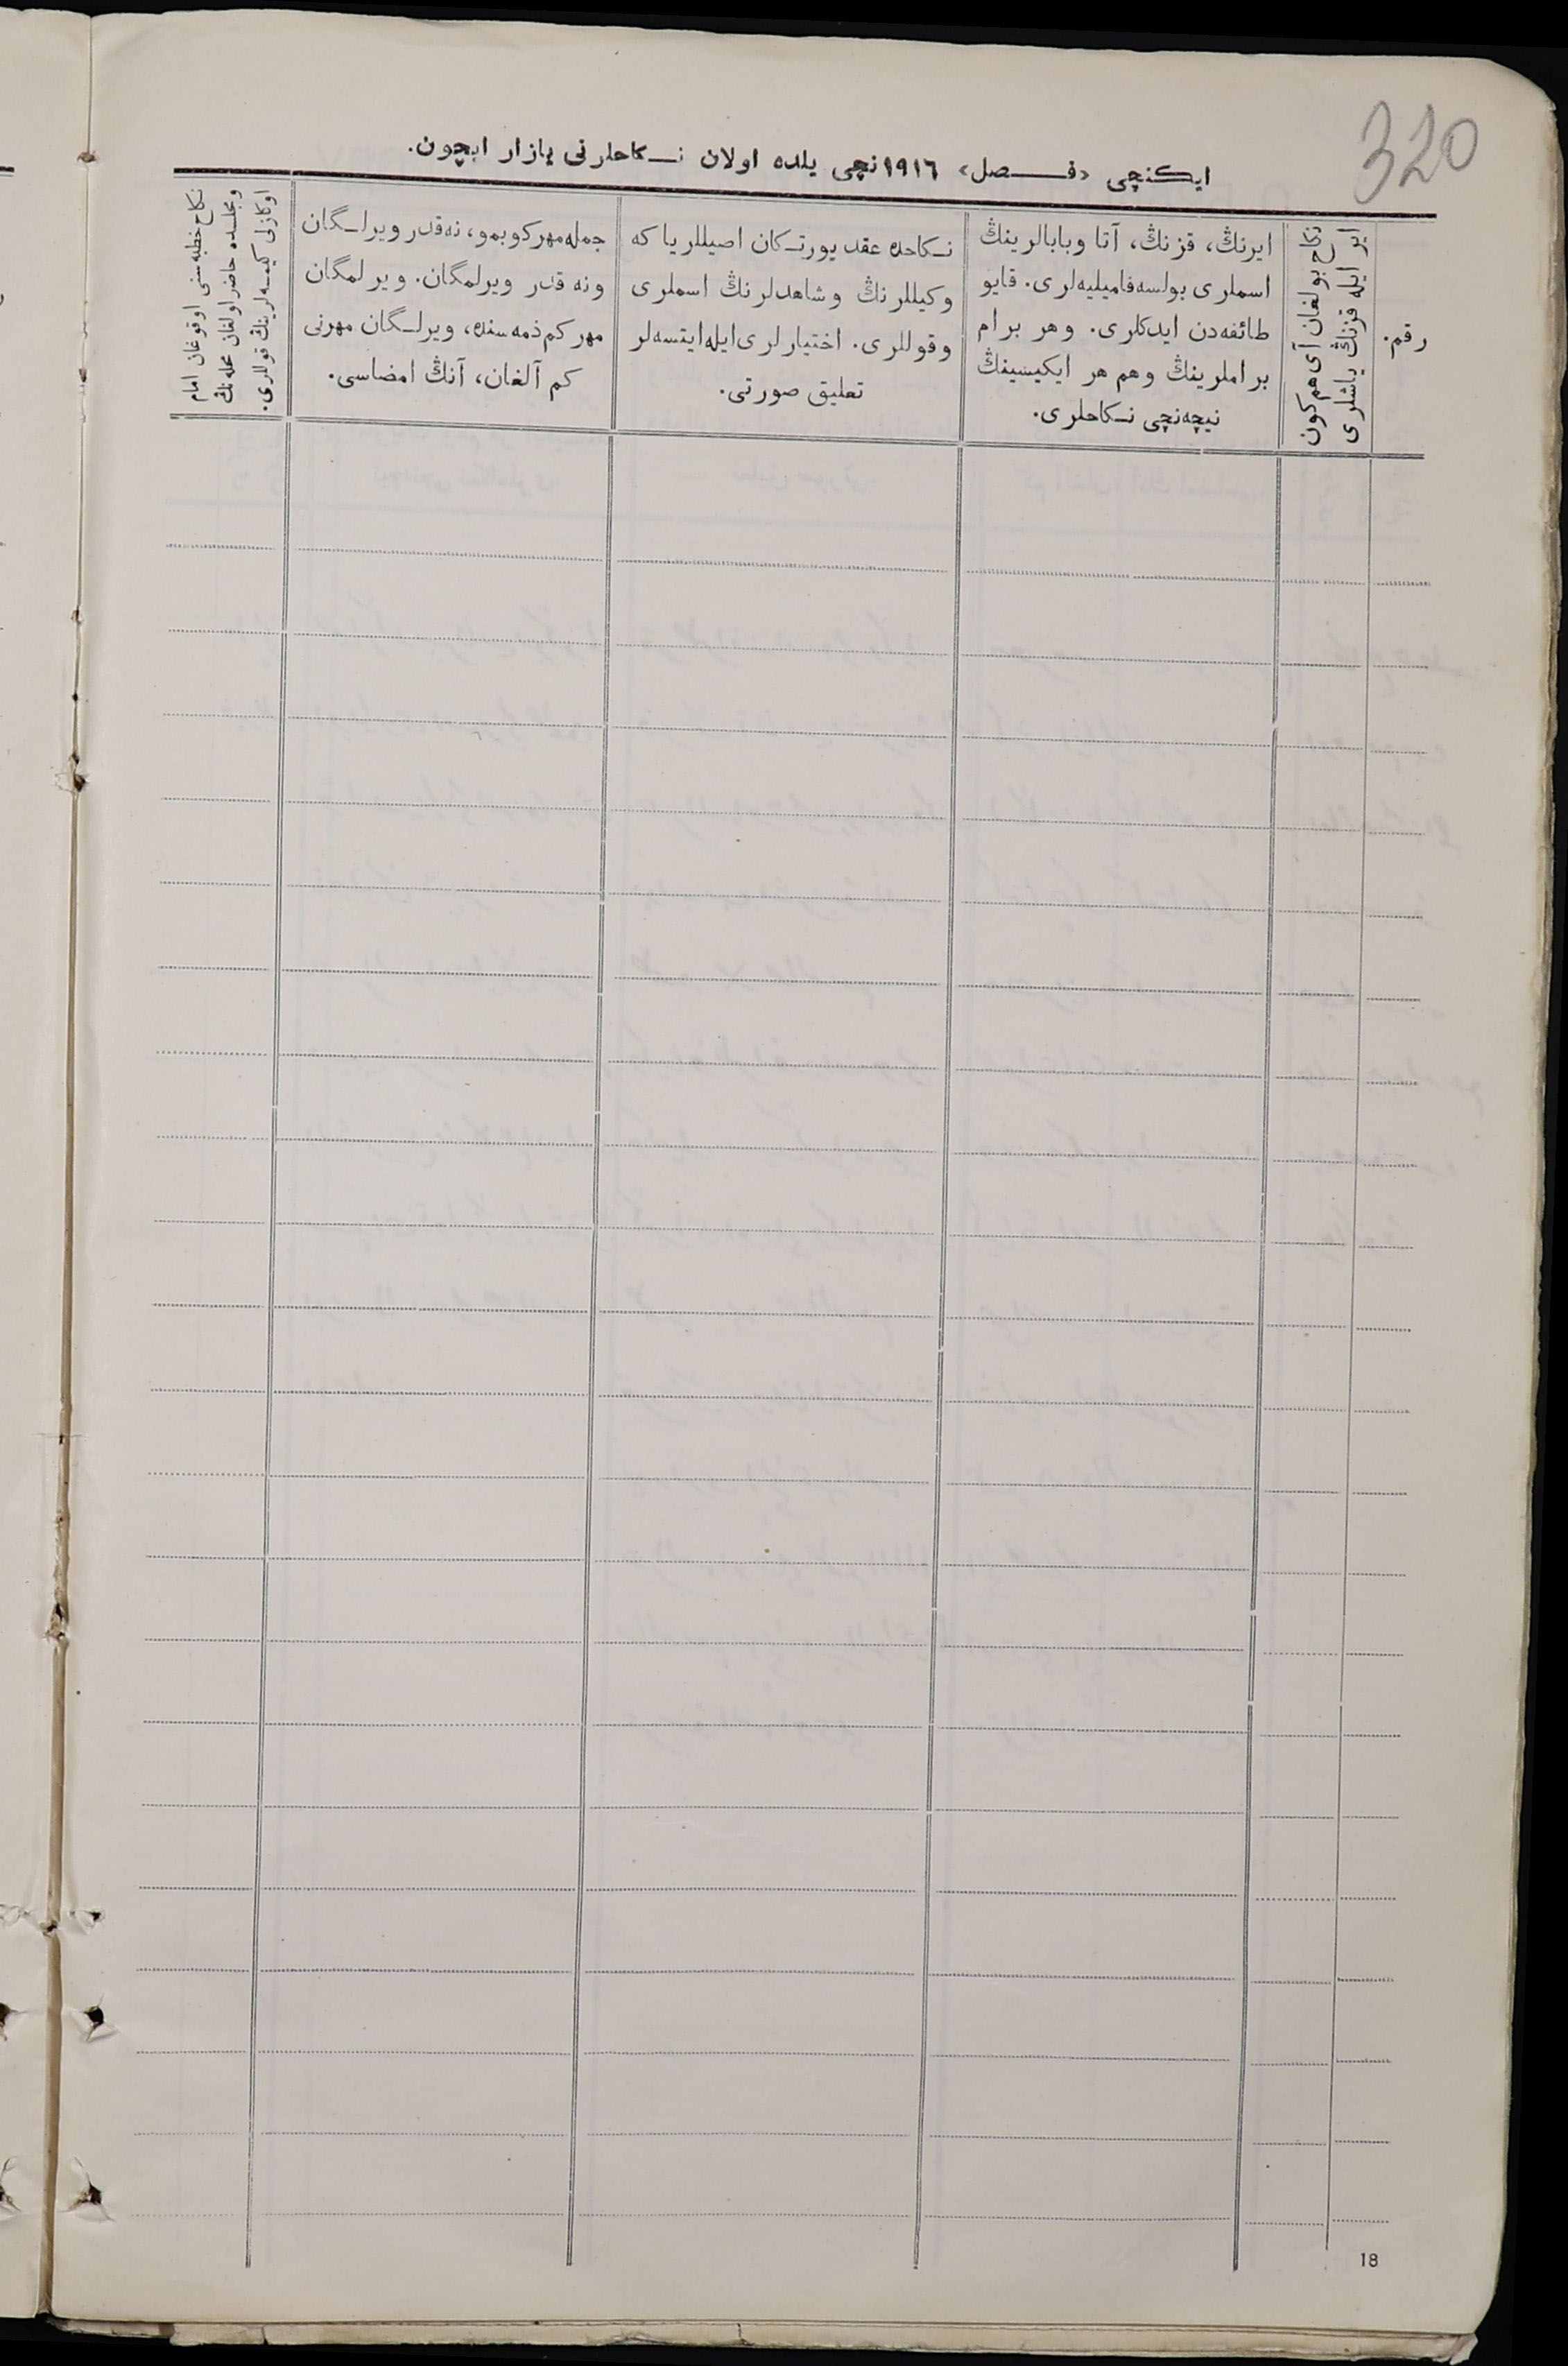 320
ایکنچی «فصل» ١٩١٦نچی یلده اولان نکاحلرنی یازار ایچون.
رقم.
ایر ایله قزنڭ یاشلری
نکاح بولغان آی هم کون
ایرنڭ، قزنڭ، آتا وبابالرینڭ
اسملری بولسه فامیلیه‌لری. قایو
طائفه‌دن ایدکلری. وهر برام
براملرینڭ وهم هر ایکیسینڭ
نیچه‌نچی نکاحلری.
نکاحده عقد یورتکان اصیللر یا که
وکیللرنڭ وشاهدلرنڭ اسملری
وقوللری. اختیارلری ایله ایتسه‌لر
تعلیق صورتی.
جمله مهر کوبمو، نه‌قدر ویرلگان
ونه قدر ویرلمگان. ویرلمگان
مهر کم ذمه‌سنده، ویرلگان مهرنی
کم آلغان، آنڭ امضاسی.
نکاح خطبه‌سنی اوقوغان امام
ومجلسده حاضر اولغان محله‌نڭ
اوکازلی کیمسه‌لرینڭ قوللری.
18